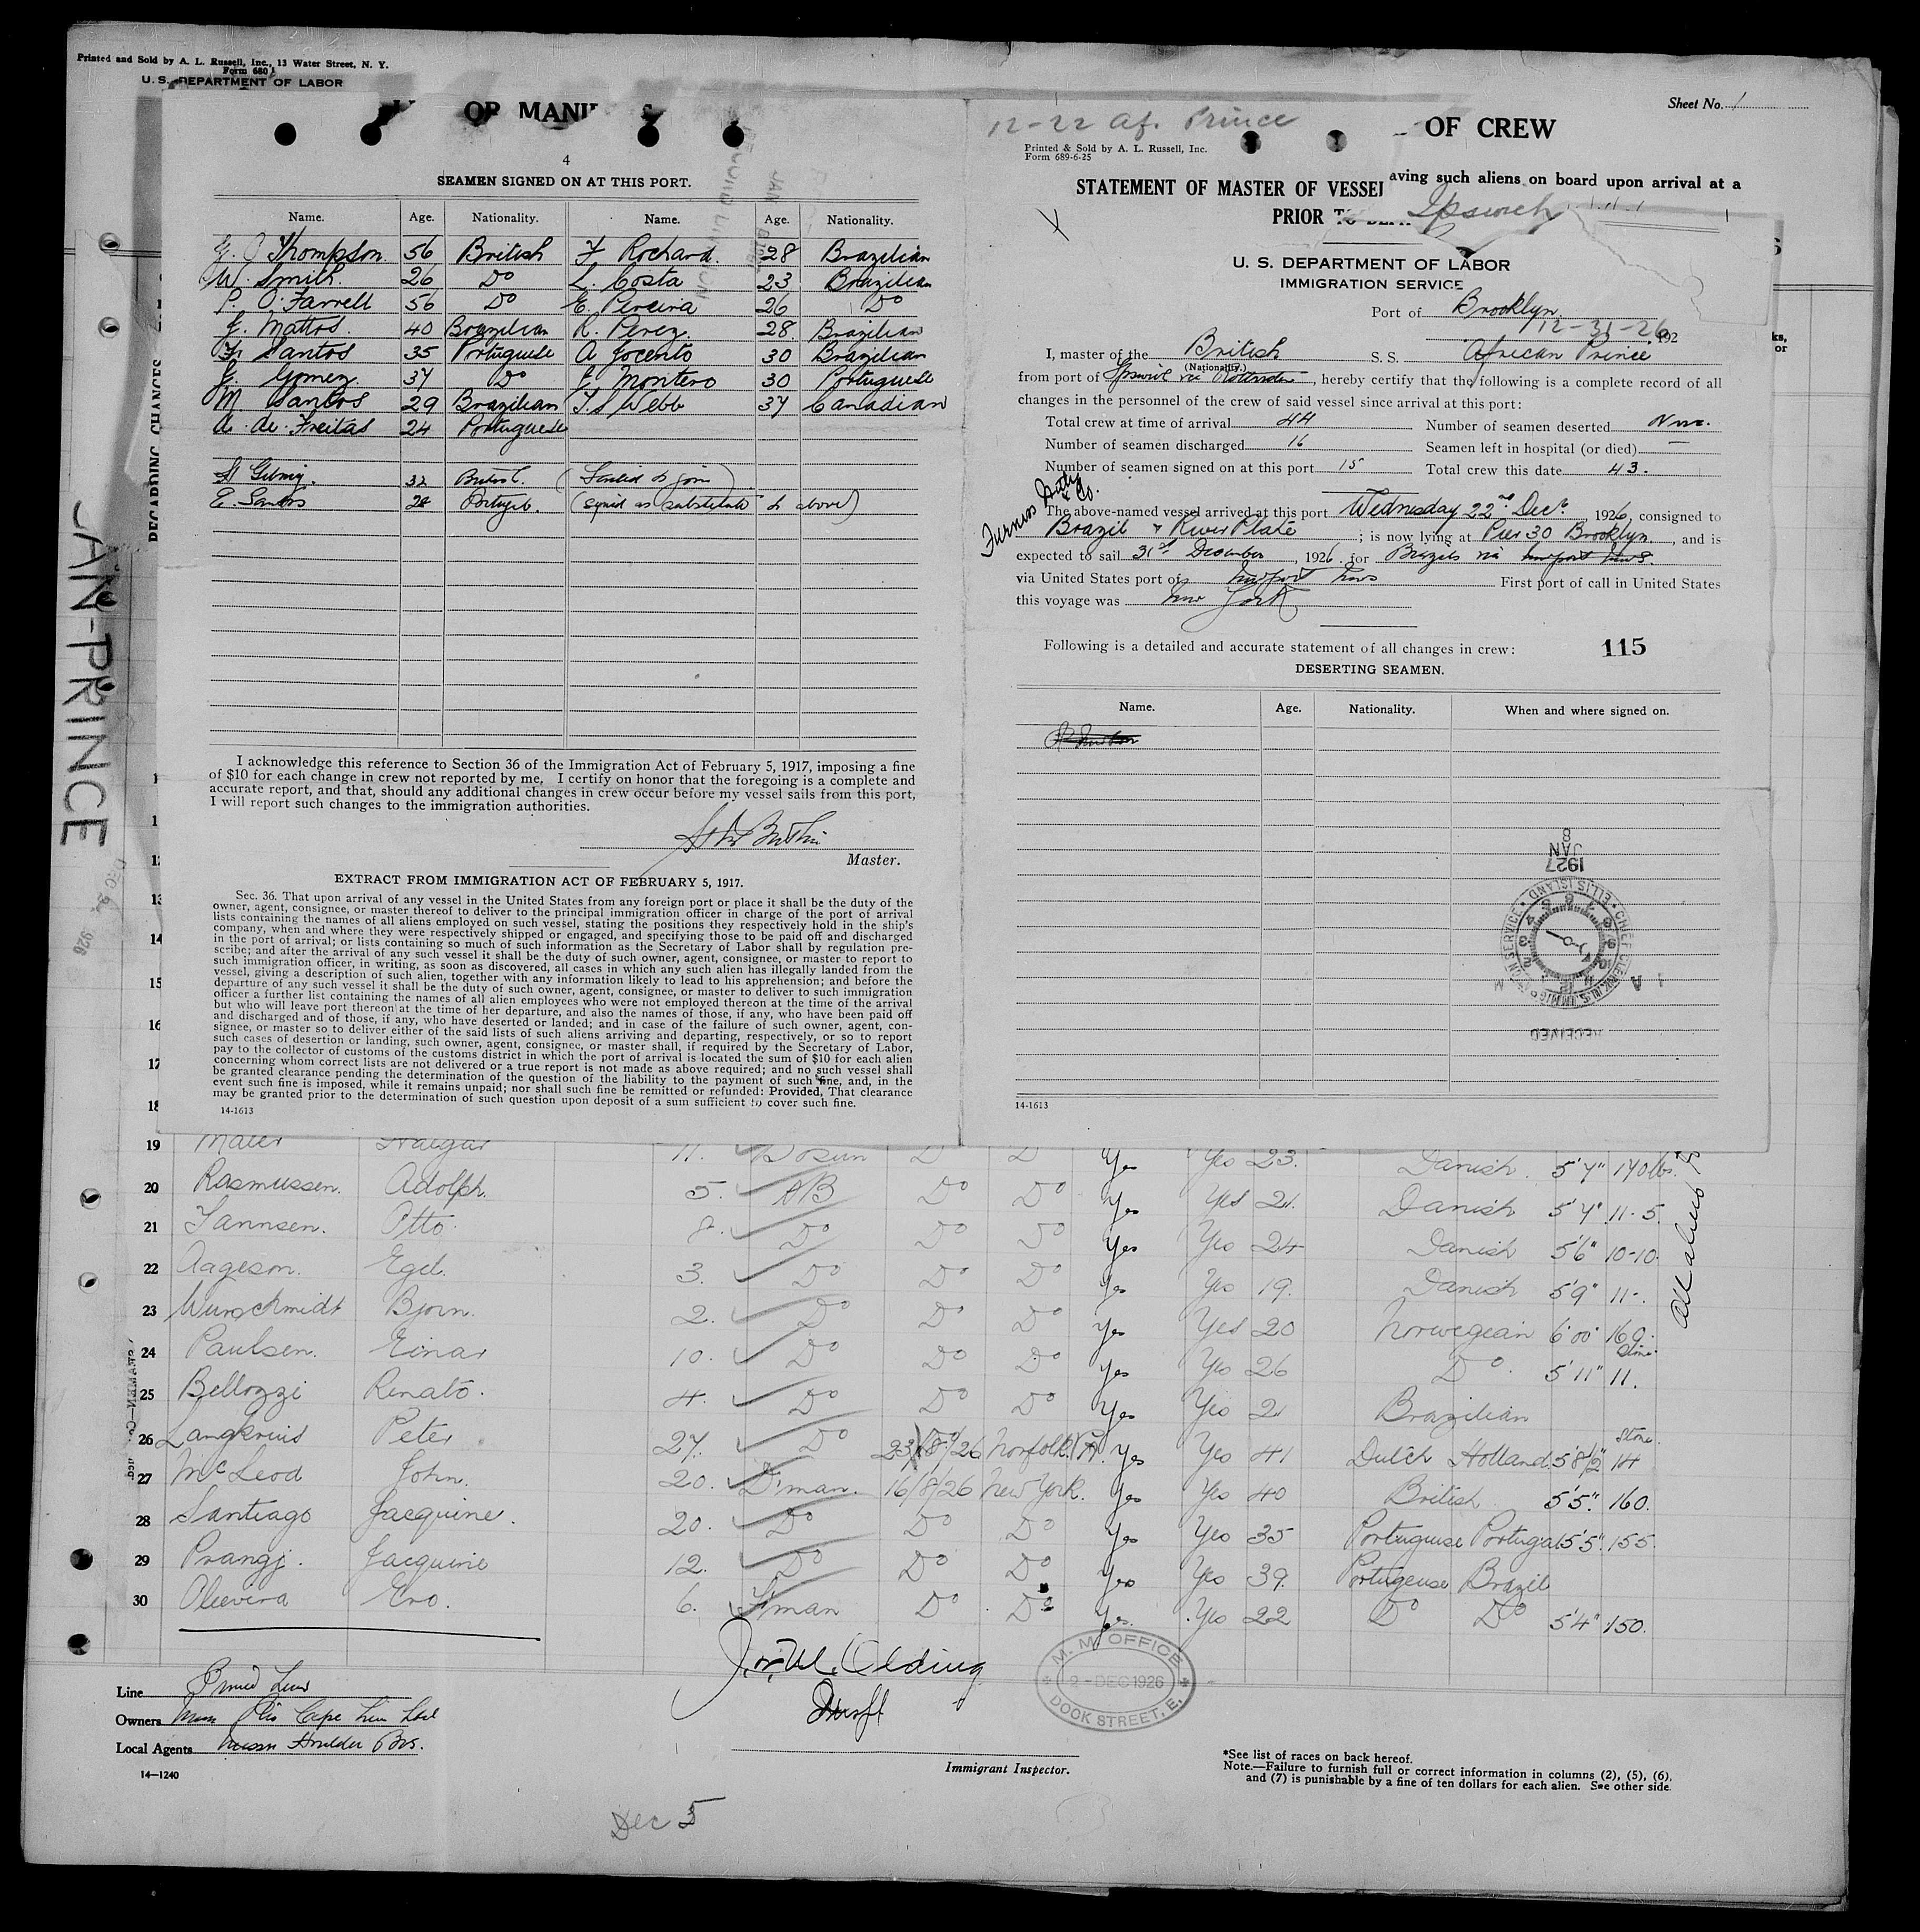 Printed and Sold by A. L. Russell, Inc., 13 Water Street, N. Y.
Form 680
U. S. DEPARTMENT OF LABOR
Sheet No. 1
OF MANI
OF CREW
aving such aliens on board upon arrival at a
Ipswich
4
SEAMEN SIGNED ON AT THIS PORT.
Name. Age. Nationality. Name. Age. Nationality.
Thompson. 56 British F Rochard. 28 Brazilian
W. Smith. 26 Do L. Costa 23 Brazilian
P. O'Farrell 56 Do E. Pereira 26 Do
J. Mattos. 40 Brazilian R. Perez. 28. Brazilian
F. Santos 35 Portuguese A Jocento 30 Brazilian
J. Gomez 37 Do J. Montero 30 Portuguese
M. Santos 29 Brazilian T. S. Webb 37 Canadian
A. de Freitas 24 Portuguese
32 (Failed to join)
E. Santos 28 Portugal. (signed as substitute to above)
I acknowledge this reference to Section 36 of the Immigration Act of February 5, 1917, imposing a fine
of $10 for each change in crew not reported by me, I certify on honor that the foregoing is a complete and
accurate report, and that, should any additional changes in crew occur before my vessel sails from this port,
I will report such changes to the immigration authorities.
Master.
EXTRACT FROM IMMIGRATION ACT OF FEBRUARY 5, 1917.
Sec. 36. That upon arrival of any vessel in the United States from any foreign port or place it shall be the duty of the
owner, agent, consignee, or master thereof to deliver to the principal immigration officer in charge of the port of arrival
lists containing the names of all aliens employed on such vessel, stating the positions they respectively hold in the ship's
company, when and where they were respectively shipped or engaged, and specifying those to be paid off and discharged
in the port of arrival; or lists containing so much of such information as the Secretary of Labor shall by regulation pre-
scribe; and after the arrival of any such vessel it shall be the duty of such owner, agent, consignee, or master to report to
such immigration officer, in writing, as soon as discovered, all cases in which any such alien has illegally landed from the
vessel, giving a description of such alien, together with any information likely to lead to his apprehension; and before the
departure of any such vessel it shall be the duty of such owner, agent, consignee, or master to deliver to such immigration
officer a further list containing the names of all alien employees who were not employed thereon at the time of the arrival
but who will leave port thereon at the time of her departure, and also the names of those, if any, who have been paid off
and discharged and of those, if any, who have deserted or landed; and in case of the failure of such owner, agent, con-
signee, or master so to deliver either of the said lists of such aliens arriving and departing, respectively, or so to report
such cases of desertion or landing, such owner, agent, consignee, or master shall, if required by the Secretary of Labor,
pay to the collector of customs of the customs district in which the port of arrival is located the sum of $10 for each alien
concerning whom correct lists are not delivered or a true report is not made as above required; and no such vessel shall
be granted clearance pending the determination of the question of the liability to the payment of such fine, and, in the
event such fine is imposed, while it remains unpaid; nor shall such fine be remitted or refunded: Provided, That clearance
may be granted prior to the determination of such question upon deposit of a sum sufficient to cover such fine.
14-1613
12-22 Af. Prince
Printed & Sold by A. L. Russell, Inc.
Form 689-6-25
STATEMENT OF MASTER OF VESSEL
PRIOR TO
U. S. DEPARTMENT OF LABOR
IMMIGRATION SERVICE
Port of Brooklyn
12-31-26, 192
I, master of the British S. S. African Prince
(Nationality.)
from port of Ipswich via Rotterdam, hereby certify that the following is a complete record of all
changes in the personnel of the crew of said vessel since arrival at this port:
Total crew at time of arrival 44 Number of seamen deserted None.
Number of seamen discharged 16 Seamen left in hospital (or died) —
Number of seamen signed on at this port 15 Total crew this date 43.
Furness Withy & Co.
The above-named vessel arrived at this port Wednesday 22nd Dec., 1926, consigned to
Brazil & River Plate; is now lying at Pier 30 Brooklyn, and is
expected to sail 31st December, 1926, for Brazils via Newport News.
via United States port of Newport News First port of call in United States
this voyage was New York
Following is a detailed and accurate statement of all changes in crew: 115
DESERTING SEAMEN.
Name. Age. Nationality. When and where signed on.
1927
JAN
8
CHIEF CLERK U.S. IMMIGRATION SERVICE • ELLIS ISLAND
RECEIVED
14-1613
AN-PRINCE
REGARDING CHANGES
19 Maier Haldgar 11. Bosun Do Do Yes Yes 23. Danish. 5'7" 170lbs.
20 Rasmussen. Adolph. 5. AB Do Do Yes Yes 21. Danish 5'7" 11-5.
21 Jannsen. Otto. 8. Do Do Do Yes Yes 24 Danish 5'6" 10-10.
22 Aageson. Egel. 3. Do Do Do Yes Yes 19. Danish 5'9" 11-.
23 Wunschmidt Bjorn. 2. Do Do Do Yes Yes 20 Norwegian 6'00" 160.
24 Paulsen. Einar 10. Do Do Do Yes Yes 26 Do. 5'11" 11. Stone.
25 Bellozzi Renato. 4. Do Do Do Yes Yes 21 Brazilian
26 Langkruis Peter 27. Do 23/8/26 Norfolk. Va. Yes Yes 41 Dutch Holland 5'8½" 14 Stone.
27 McLeod John. 20. F'man. 16/8/26 New York. Yes Yes 40 British 5'5". 160.
28 Santiago Jacquine. 20. Do Do Do Yes Yes 35 Portuguese Portugal 5'5". 155.
29 Prangj. Jacquine 12. Do Do Do Yes Yes 39. Portugeuse Brazil
30 Olievira Eno. 6. F'man Do Do Yes. Yes 22 Do Do 5'4" 150.
M. M. OFFICE
2-DEC 1926
DOCK STREET, E.
Line Prince Line
Owners
Local Agents Messrs Houlder Bros.
14—1240
Immigrant Inspector.
*See list of races on back hereof.
Note.—Failure to furnish full or correct information in columns (2), (5), (6),
and (7) is punishable by a fine of ten dollars for each alien. See other side.
Dec 5